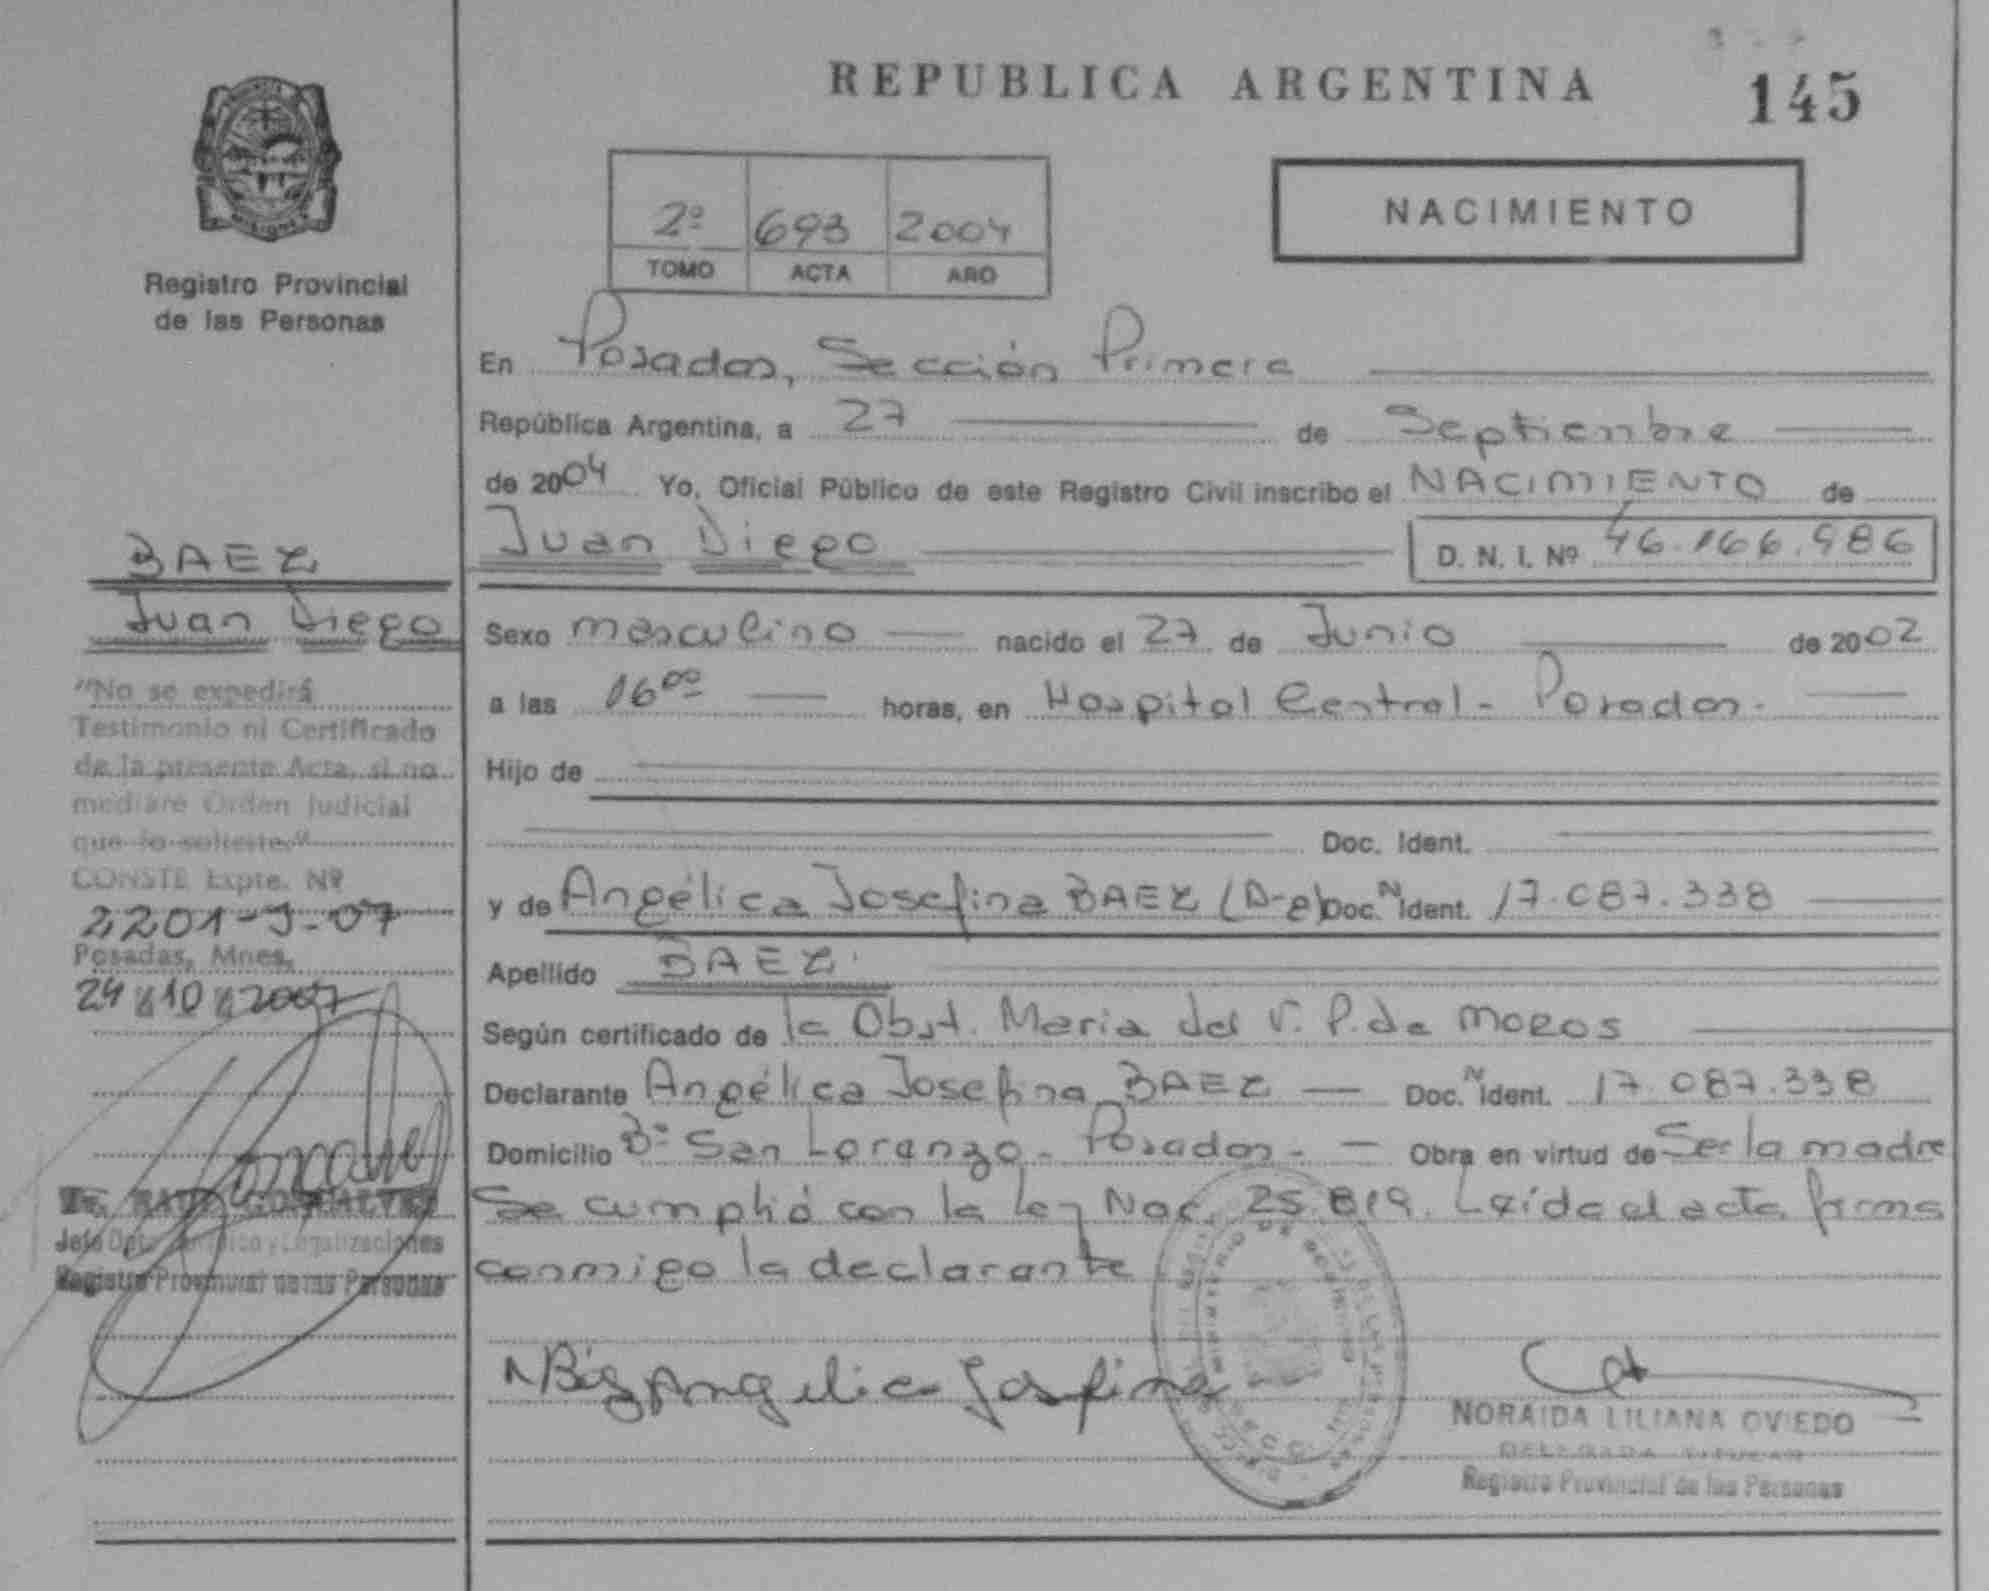 REPUBLICA ARGENTINA
145
2º 693 2004
TOMO ACTA AÑO
NACIMIENTO
Registro Provincial
de las Personas
En Posadas, Sección Primera
República Argentina, a 27 de Septiembre
de 2004 Yo, Oficial Público de este Registro Civil inscribo el NACIMIENTO de
Juan Diego D. N. I. Nº 46.166.986
Sexo masculino nacido el 27 de Junio de 2002
a las 16⁰⁰ horas, en Hospital Central - Posadas.
Hijo de
Doc. Ident.
y de Angélica Josefina BAEZ Doc. N Ident. 17.087.338
Apellido BAEZ
Según certificado de la Obst. Maria del V. P. de MOROS
Declarante Angélica Josefina BAEZ Doc. N Ident. 17.087.338
Domicilio Bº San Lorenzo - Posadas - Obra en virtud de Ser la madre
Se cumplió con la ley Nac. 25.819. Leída el acta firma
conmigo la declarante
Angelica Josfina
NORAIDA LILIANA OVIEDO
DELEGADA TITULAR
Registro Provincial de las Personas
BAEZ
Juan Diego
"No se expedirá
Testimonio ni Certificado
de la presente Acta, si no
mediare Orden Judicial
que lo solicite."
CONSTE Expte. Nº
2201-J-07
Posadas, Mnes,
24 10 2007
Registro Provincial de las Personas